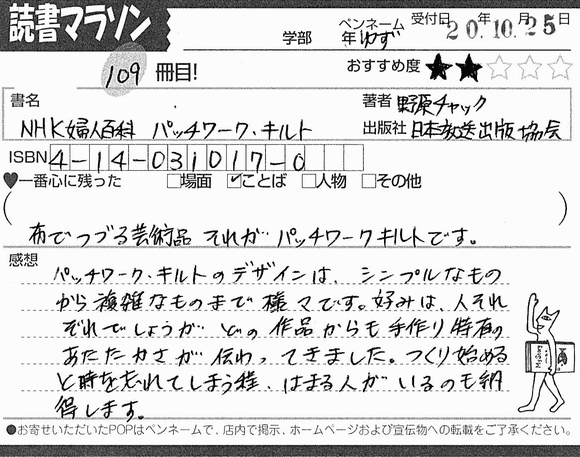 読書マラソン
学部 年 ペンネーム ゆず 受付日 20年10月25日
109冊目! おすすめ度 ★★☆☆☆
書名 著者 野原チャック
NHK婦人百科 パッチワーク・キルト 出版社 日本放送出版協会
ISBN 4-14-031017-0
♥一番心に残った □場面 ☑ことば □人物 □その他
布でつづる芸術品 それが パッチワークキルトです。
感想
パッチワーク・キルトのデザインは、シンプルなもの
から複雑なものまで様々です。好みは、人それ
ぞれでしょうが どの作品からも手作り特有の
あたたかさが伝わってきました。つくり始める
と時を忘れてしまう程、はまる人がいるのも納
得します。
●お寄せいただいたPOPはペンネームで、店内で掲示、ホームページおよび宣伝物への転載をご了承ください。